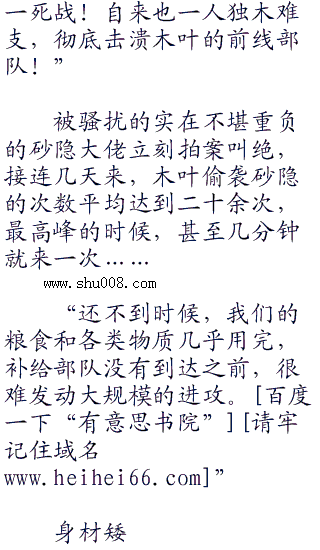 一死战！自来也一人独木难
支，彻底击溃木叶的前线部
队！”
被骚扰的实在不堪重负
的砂隐大佬立刻拍案叫绝，
接连几天来，木叶偷袭砂隐
的次数平均达到二十余次，
最高峰的时候，甚至几分钟
就来一次……
www.shu008.com
“还不到时候，我们的
粮食和各类物质几乎用完，
补给部队没有到达之前，很
难发动大规模的进攻。[百度
一下“有意思书院”][请牢
记住域名
www.heihei66.com]”
身材矮